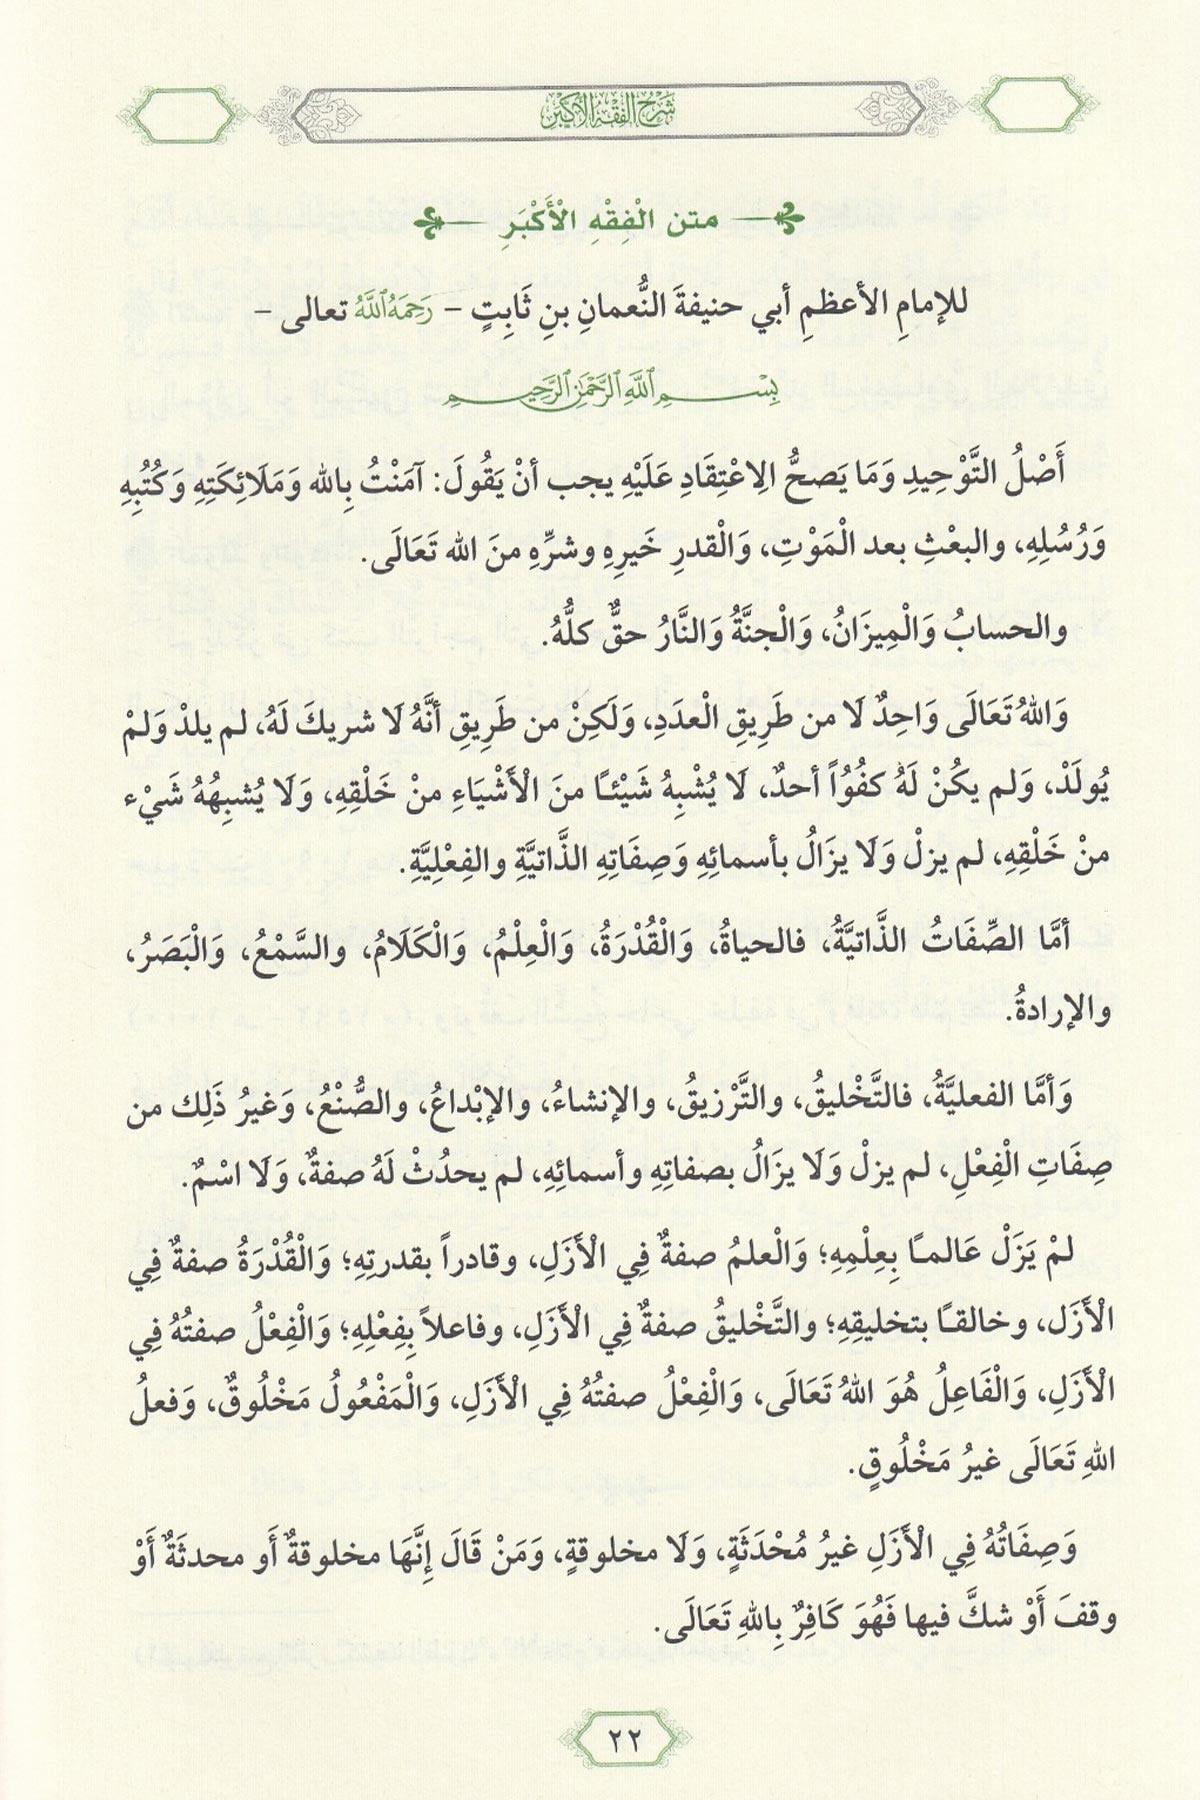 شرح الفقه الأكبر
متن الْفِقْهِ الْأَكْبَرِ
للإمامِ الأعظمِ أبي حنيفةَ النُّعمانِ بنِ ثَابِتٍ – رَحِمَهُ اللَّهُ تعالى –
بِسْمِ اللَّهِ الرَّحْمَنِ الرَّحِيمِ
أَصْلُ التَّوْحِيدِ وَمَا يَصحُّ الِاعْتِقَادِ عَلَيْهِ يجب أنْ يَقُولَ: آمَنْتُ بِالله وَمَلَائِكَتِهِ وَكُتُبِهِ
وَرُسُلِهِ، والبعْثِ بعد الْمَوْتِ، وَالْقدرِ خَيرِهِ وشرِّهِ منَ الله تَعَالَى.
والحسابُ وَالْمِيزَانُ، وَالْجنَّةُ وَالنَّارُ حقٌّ كلُّهُ.
وَاللهُ تَعَالَى وَاحِدٌ لَا من طَرِيقِ الْعدَدِ، وَلَكِنْ من طَرِيقِ أنَّهُ لَا شريكَ لَهُ، لم يلدْ وَلمْ
يُولَدْ، وَلم يكُنْ لَهُ كفُوُاً أحدٌ، لَا يُشْبِهُ شَيْئًا منَ الْأَشْيَاءِ منْ خَلْقِهِ، وَلَا يُشبِهُهُ شَيْء
منْ خَلْقِهِ، لم يزلْ وَلَا يزَالُ بأسمائِهِ وَصِفَاتِهِ الذَّاتيَّةِ والفِعْلِيَّةِ.
أمَّا الصِّفَاتُ الذَّاتيَّةُ، فالحياةُ، وَالْقُدْرَةُ، وَالْعِلْمُ، وَالْكَلَامُ، والسَّمْعُ، وَالْبَصَرُ،
والإرادةُ.
وَأمَّا الفعليَّةُ، فالتَّخْليقُ، والتَّرْزيقُ، والإنشاءُ، والإبْداعُ، والصُّنْعُ، وَغيرُ ذَلِك من
صِفَاتِ الْفِعْلِ، لم يزلْ وَلَا يزَالُ بصفاتِهِ وأسمائِهِ، لم يحدُثْ لَهُ صفةٌ، وَلَا اسْمٌ.
لمْ يَزَلْ عَالمًا بِعِلْمِهِ؛ وَالْعلمُ صفةٌ فِي الْأَزَلِ، وقادراً بقدرتِهِ؛ وَالْقُدْرَةُ صفةٌ فِي
الْأَزَل، وخالقًا بتخليقِهِ؛ والتَّخْليقُ صفةٌ فِي الْأَزَلِ، وفاعلاً بِفِعْلِهِ؛ وَالْفِعْلُ صفتُهُ فِي
الْأَزَلِ، وَالْفَاعِلُ هُوَ اللهُ تَعَالَى، وَالْفِعْلُ صفتُهُ فِي الْأَزَلِ، وَالْمَفْعُولُ مَخْلُوقٌ، وَفعلُ
اللهِ تَعَالَى غيرُ مَخْلُوقٍ.
وَصِفَاتُهُ فِي الْأَزَلِ غيرُ مُحْدَثَةٍ، وَلَا مخلوقةٍ، وَمَنْ قَالَ إِنَّهَا مخلوقةٌ أَو محدثَةٌ أَوْ
وقفَ أَوْ شكَّ فيها فَهُوَ كَافِرٌ بِاللهِ تَعَالَى.
٢٢